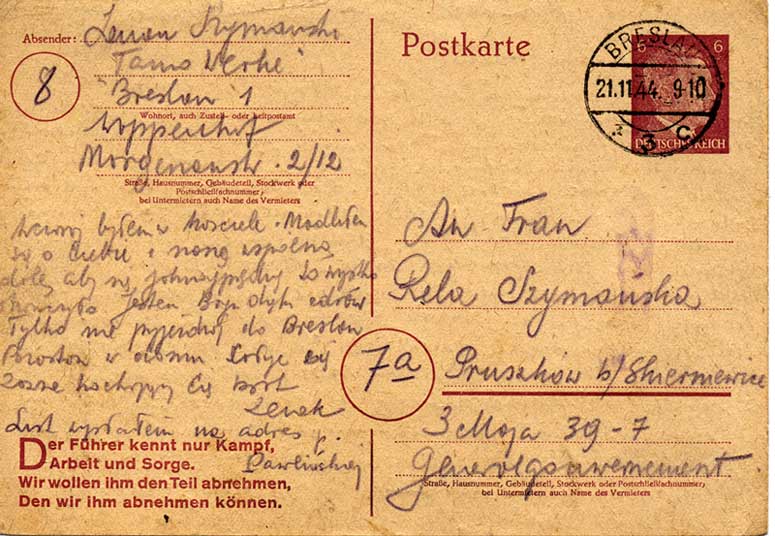 Absender: Zenon Szymański
"Tamo Werke"
"Breslau 1
Wohnort, auch Zustell- oder Leitpostamt
8
Morgenaustr. 2/12
Straße, Hausnummer, Gebäudeteil, Stockwerk oder
Postschließfachnummer,
bei Untermietern auch Name des Vermieters
byłem w kościele. Modliłem
się o Ciebie i naszą wspólną
dolę, aby się to wszystko
skończyło. Jestem
Tylko nie przyjeżdżaj do Breslau
Pozostań w domu
Zawsze kochający Cię
Zenek
List wysłałem na adres p.
Pawlińskiej
Der Führer kennt nur Kampf,
Arbeit und Sorge.
Wir wollen ihm den Teil abnehmen,
Den wir ihm abnehmen können.
Postkarte
BRESLAU
21.11.44. 9-10
3 C
6 6
DEUTSCHES REICH
An Frau
Rela Szymańska
7a
Pruszków b/Skierniewice
3 Maja 39-7
Generalgouvernement
Straße, Hausnummer, Gebäudeteil, Stockwerk oder Postschließfachnummer,
bei Untermietern auch Name des Vermieters